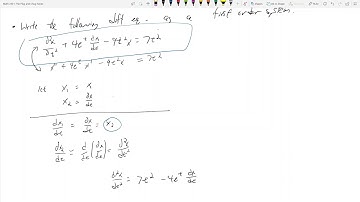 • Write the following diff eq. as a first order system.
d²x/dt² + 4e^t dx/dt - 9t²x = 7t²
x'' + 4e^t x' - 9t²x = 7t²
let x₁ = x
x₂ = dx/dt
dx₁/dt = dx/dt = x₂
dx₂/dt = d/dt (dx/dt) = d²x/dt²
d²x/dt² = 7t² - 4e^t dx/dt